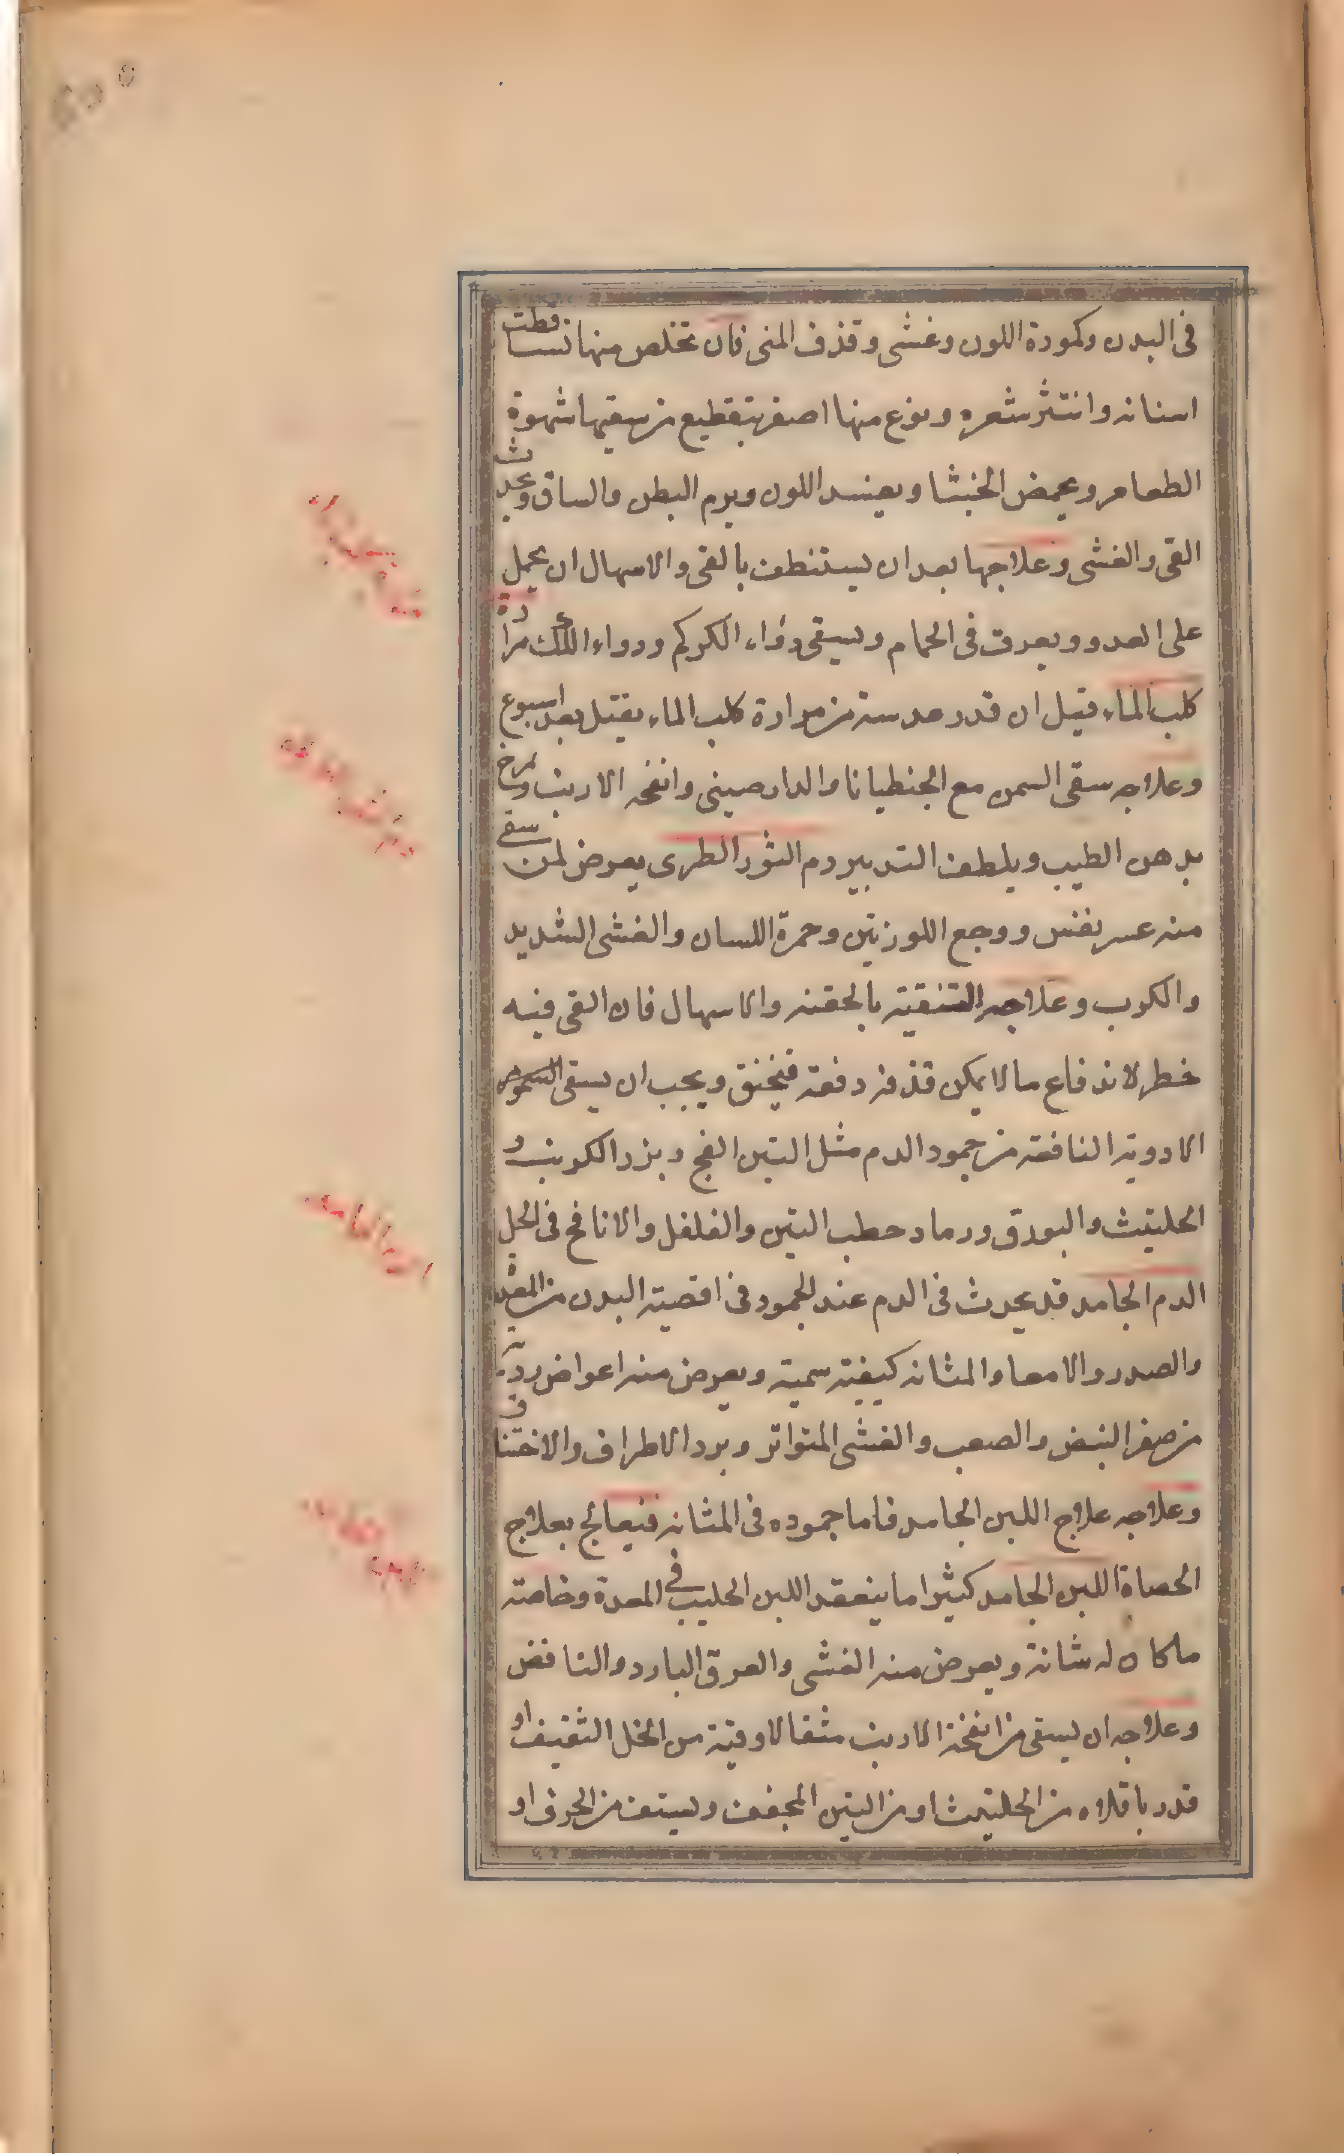 فى البدن وكمودة اللون وغشى وقذف المنى فان تخلص منها تساقطت
اسنانه وانتثر شعره ونوع منها اصفر يقطيع من سقيها شهوة
الطعام ويحمض الجشا ويفسد اللون ويرم البطن والساق ويحدث
القى والغشى وعلاجها بعد ان يستنظف بالقى والاسهال ان يحمل
على العدو ويعرق فى الحمام ويسقى دواء الكركم ودواء اللك مرارة
كلب الماء قيل ان قدر عدسة من مرارة كلب الماء يقتل بعد اسبوع
وعلاجه سقى السمن مع الجنطيانا والدارصينى وانفحه الارنب ويمرخ
بدهن الطيب ويلطف التدبير دم الثور الطرى يعرض لمن سقى
منه عسر نفس ووجع اللوزتين وحمرة اللسان والغشى الشديد
والكرب وعلاجه التنقية بالحقنه والاسهال فان القى فيه
خطر لاندفاع ما لا يمكن قذفه دفعة فيخنق ويجب ان يسقى
الادويه النافعه من جمود الدم مثل التين الفج وبزر الكرنب و
الحلتيث والبورق ورماد حطب التين والفلفل والانافح فى الخل
الدم الجامد قد يحدث فى الدم عند الجمود فى اقضية البدن من المعدة
والصدر والامعا والمثانه كيفية سمية ويعرض منه اعراض ردية
من صغر النبض والصعب والغشى المتواتر وبرد الاطراف والاختناق
وعلاجه علاج اللبن الجامد فاما جموده فى المثانه فيعالج بعلاج
الحصاة اللبن الجامد كثيرا ما ينعقد اللبن الحليب فى المعدة وخاصته
ما كان له شانة ويعرض منه الغشى والعرق البارد والنافض
وعلاجه ان يسقى من انفخة الارنب مثقالا وقية من الخل الثقيف او
قدر باقلاه من الحلتيث او من التين المجفف ويستف من الحرف او